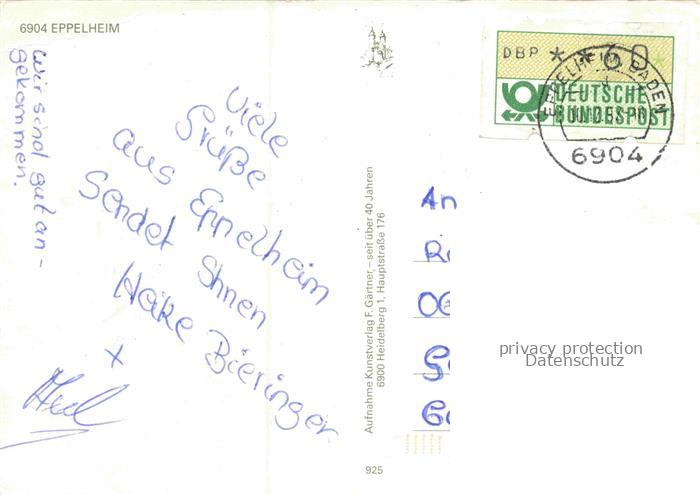 6904 EPPELHEIM
Wir sind gut an-
gekommen.
Viele
Grüße
aus Eppelheim
Sendet Ihnen
Heike Bieringer
+
Aufnahme Kunstverlag F. Gärtner, – seit über 40 Jahren
6900 Heidelberg 1, Hauptstraße 176
925
DBP **60
DEUTSCHE
BUNDESPOST
EPPELHEIM, BADEN
6904
An
privacy protection
Datenschutz